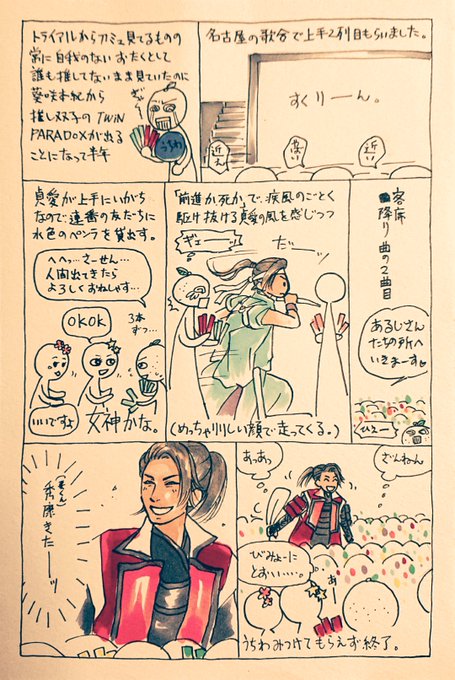 名古屋の歌合で上手2列目もらいました。
すくりーん。
近い
近え
トライアルから刀ミュ見てるものの
常に自我のないおたくとして
誰も推してないまま見ていたのに
葵咲本紀から
推し双子の TWiN
PARADOXが出る
ことになって半年
うちわ
客席
降り曲の2曲目
あるじさん
たちの所へ
いきまーす♡
ひえー
「前進か死か」で、疾風のごとく
駆け抜ける貞愛の風を感じつつ
ギェーーッ
だーッ
(めっちゃりりしい顔で走ってくる。)
貞愛が上手にいがち
なので連番の友たちに
水色のペンラを貸出す。
へへっ…さーせん…
人間出てきたら
よろしくおねしゃす…
OKOK
3本
ずつ…
いいですよ
女神かな。
ざんねん
あっあっ
びみょーに
とおい……。
あー
うちわみつけてもらえず終了。
秀康きたーーッ